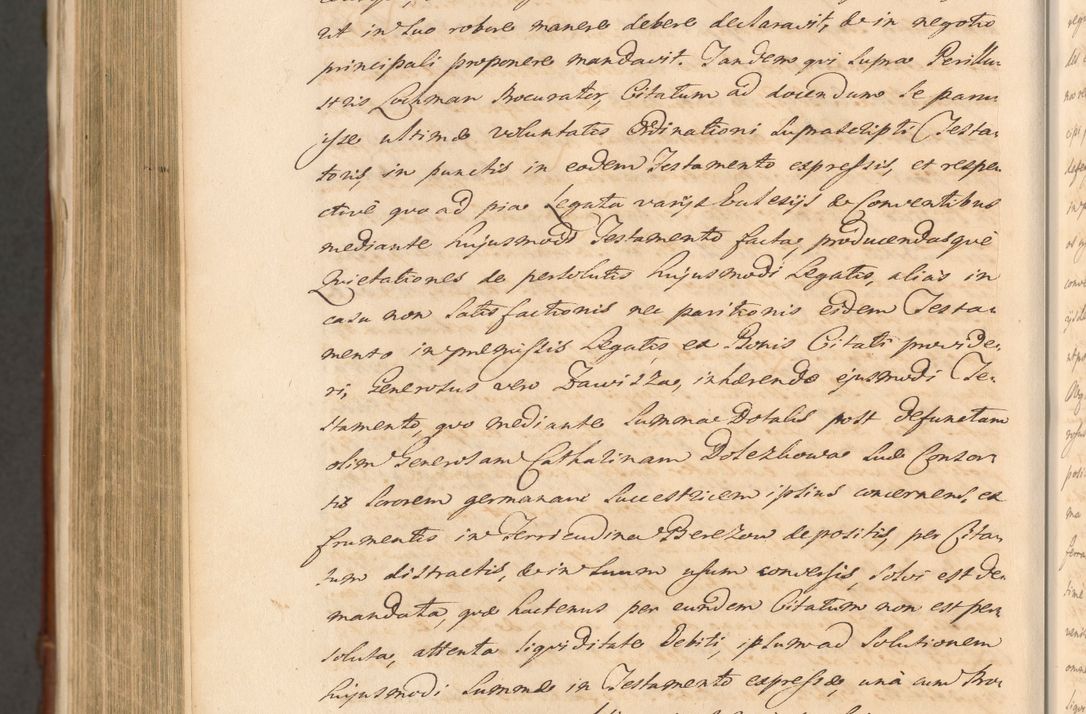 ut in suo robore manere debere declaravit, & in negotio
principali proponere mandavit. Tandem qui supra Perillu-
stris Lochman Procurator, Citatum ad docendum se paru-
isse ultimæ voluntatis Ordinationi suprascripti Testa-
toris, in punctis in eodem Testamento expressis, et respe-
ctivè quo ad pia Legata varijs Ecclesijs & Conventibus
mediante hujusmodi Testamento facta, producendasquè
Quietationes de persolutis hujusmodi Legatis, alias in
casu non satisfactionis nec paritionis eidem Testa-
mento in præmissis Legatis ex Bonis Citati provide-
ri, Generosus vero Dawisza, inhærendo ejusmodi Te-
stamento, quo mediante Summa Dotalis post defunctam
olim Generosam Catharinam Dolezkowa suæ Consor-
tis sororem germanam Successtricem ipsius concernens, ex
frumentis in Terricudina Berezow depositis, per Cita-
tum distractis, & in suum usum conversis, solvi est de-
mandata, quæ hactenus per eundem Citatum non est per-
soluta, attenta liquiditate Debiti, ipsum ad solutionem
hujusmodi Summæ in Testamento expressæ, unà cum Pro-